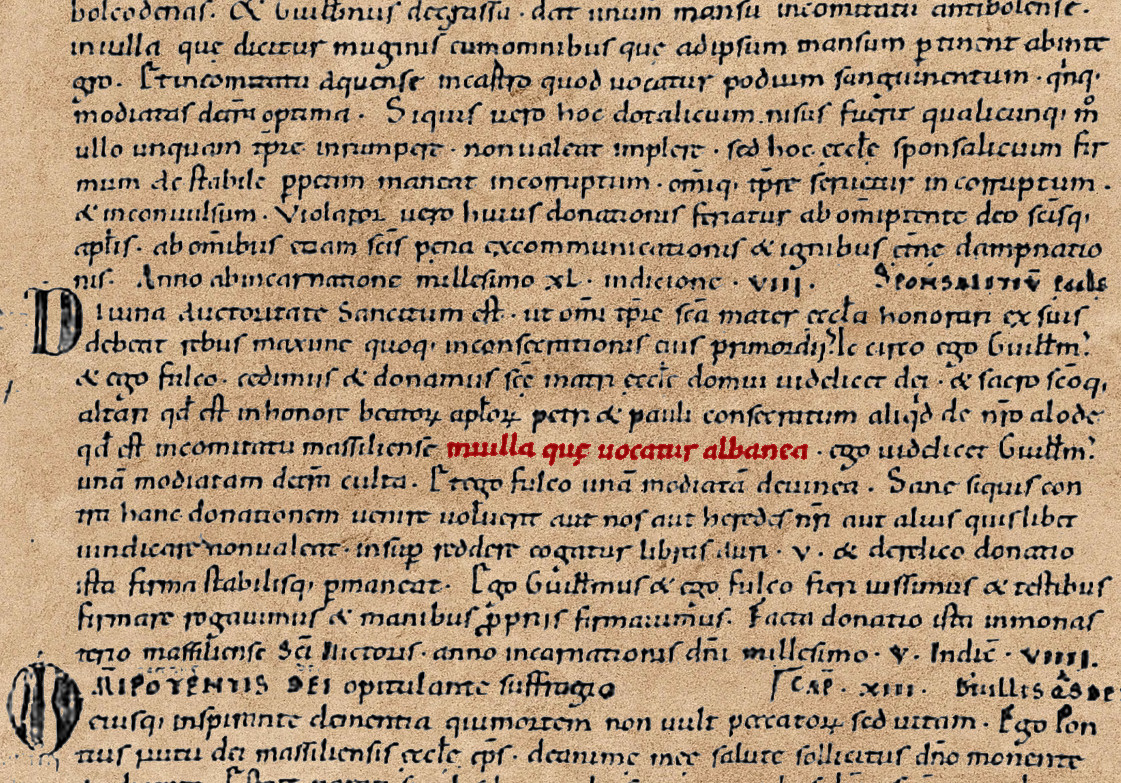 boledenas. & Guillelmus degassa. dat unum mansu incomitatu antibolense.
inuilla quę dicitur muginis cumomnibus que adipsum mansum ptinent abinte
gro. Et incomitatu aquense incastro quod uocatur podium sanguinentum. qnq;
modiatas de tra optima. Siquis uero hoc dotalicum nisus fuerit qualicunq; mo
ullo unquam tpre inrumpere. non ualeat implere. sed hoc eccle sponsalicium fir
mum & stabile ppetim maneat incorruptum. omiq; tpre seruetur in corruptum.
& inconuulsum. Violator uero huius donationis feriatur ab omiptente deo scisq;
aplis. ab omibus etiam scis pena excommunicationis & ignibus etne dampnatio
nis. Anno abincarnatione millesimo XL. indicione. VIII. SPONSALITIU
Diuina auctoritate Sancitum est. ut omi tpre sca mater eccla honorari ex suis
debeat rebus maxime quoq; inconsecrationis eius primordiis. Ic circo ego Guillm;
& ego fulco. cedimus & donamus sce matri eccle domui uidelicet dei. & sacro scoq;
altari qd est in honore beator aplor petri & pauli consecratum aliqd de nro alode
qd est incomitatu massiliense inuilla quę uocatur albanea. ego uidelicet Guillm;
unā modiatam de tra culta. Et ego fulco unā modiatā deuinea. Sane siquis con
tra hanc donationem uenire uoluerit aut nos aut heredes nri aut aluis quislibet
uindicare non ualeat. insup reddere cogatur libras auri. V. & deredico donatio
ista firma stabilisq; pmaneat. Ego Guillmus & ego fulco fieri iussimus & testibus
firmare rogauimus & manibus ppriis firmauimus. Facta donatio ista inmonas
terio massiliense Sci Uictoris. anno incarnationis dni millesimo. V. Indic. VIIII.
OMIPOTENTIS DEI opitulante suffragio CAP. XIII.
eiusq; inspirante clementia quimortem non uult peccator sed uitam. Ego Pon
tius nutu dei massiliensis eccle eps. deanime mee salute sollicitus dno monente